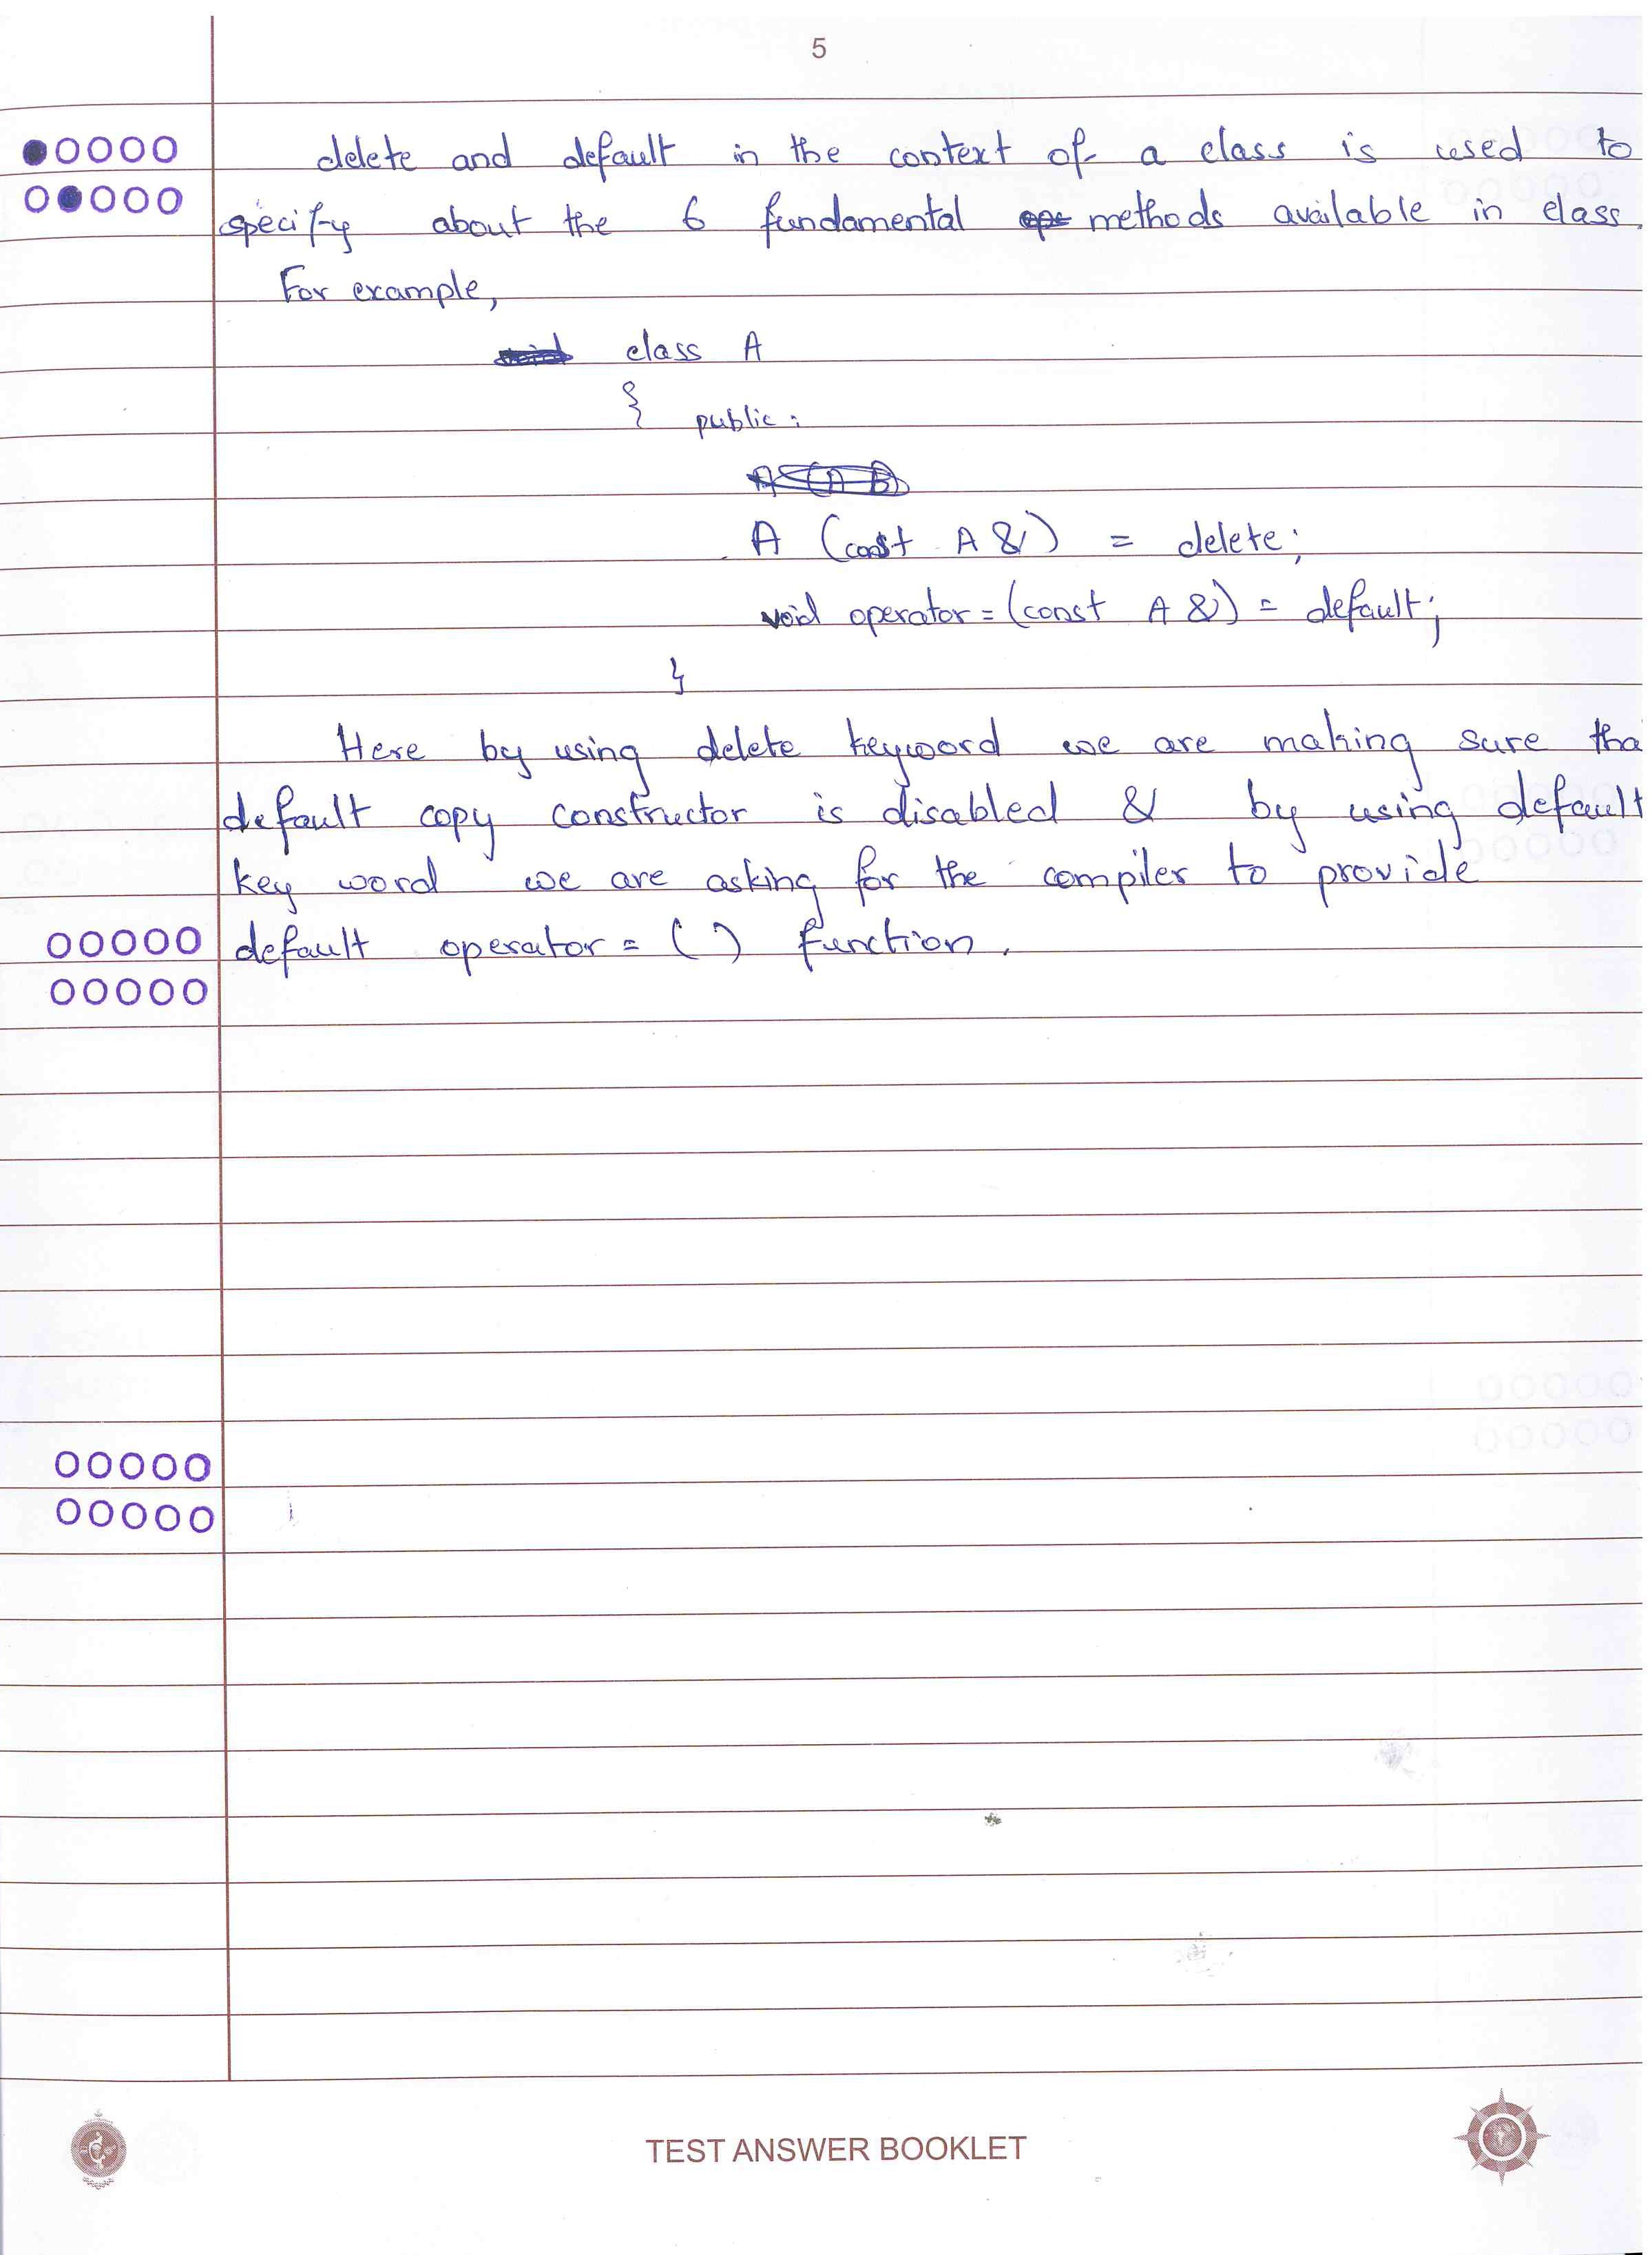 5
delete and default in the context of a class is used to
specify about the 6 fundamental methods available in class.
For example,
class A
{ public:
A (const A &) = delete;
void operator=(const A &) = default;
}
Here by using delete keyword we are making sure tha
default copy constructor is disabled & by using default
key word we are asking for the compiler to provide
default operator=( ) function.
TEST ANSWER BOOKLET